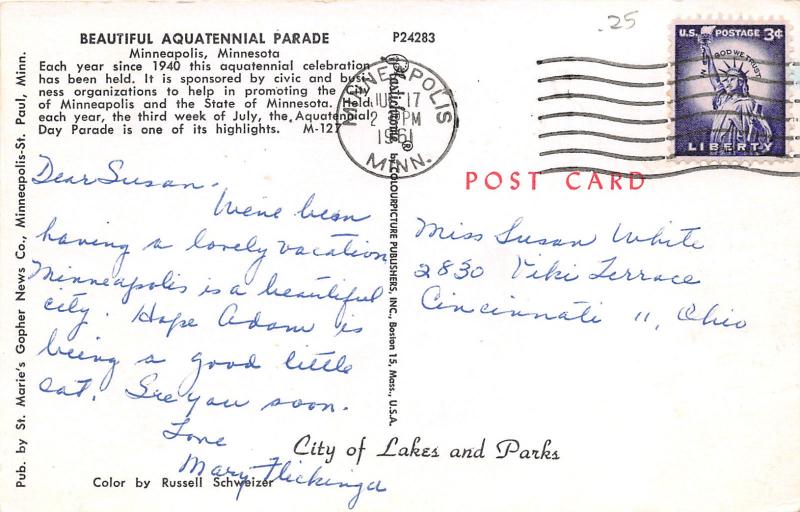 .25
BEAUTIFUL AQUATENNIAL PARADE
P24283
Minneapolis, Minnesota
Each year since 1940 this aquatennial celebration
has been held. It is sponsored by civic and busi-
ness organizations to help in promoting the City
of Minneapolis and the State of Minnesota. Held
each year, the third week of July, the Aquatennial
Day Parade is one of its highlights. M-127
Pub. by St. Marie's Gopher News Co., Minneapolis-St. Paul, Minn.
Plastichrome ® by COLOURPICTURE PUBLISHERS, INC., Boston 15, Mass., U.S.A.
MINNEAPOLIS
17
2 PM
1961
MINN.
U.S. POSTAGE 3¢
IN GOD WE TRUST
LIBERTY
POST CARD
Dear Susan,
We've been
having a lovely vacation
Minneapolis is a beautiful
city. Hope Adam is
being a good little
cat. See you soon.
Love
Mary Flickinger
Miss Susan White
2830 Viki Terrace
Cincinnati 11, Ohio
City of Lakes and Parks
Color by Russell Schweizer